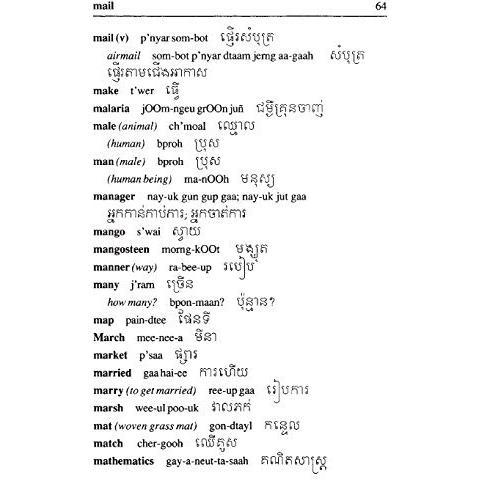 mail 64
mail (v) p'nyar som-bot ផ្ញើរសំបុត្រ
airmail som-bot p'nyar dtaam jerng aa-gaah សំបុត្រ
ផ្ញើរតាមជើងអាកាស
make t'wer ធ្វើ
malaria jOOm-ngeu grOOn juñ ជម្ងឺគ្រុនចាញ់
male (animal) ch'moal ឈ្មោល
(human) bproh ប្រុស
man (male) bproh ប្រុស
(human being) ma-nOOh មនុស្ស
manager nay-uk gun gup gaa; nay-uk jut gaa
អ្នកកាន់កាប់ការ; អ្នកចាត់ការ
mango s'wai ស្វាយ
mangosteen morng-kOOt មង្ឃុត
manner (way) ra-bee-up របៀប
many j'rarn ច្រើន
how many? bpon-maan? ប៉ុន្មាន?
map pain-dtee ផែនទី
March mee-nee-a មិនា
market p'saa ផ្សារ
married gaa hai-ee ការហើយ
marry (to get married) ree-up gaa រៀបការ
marsh wee-ul pook វាលភក់
mat (woven grass mat) gon-dtayl កន្ទេល
match cher-gooh ឈើគូស
mathematics gay-a-neut-ta-saah គណិតសាស្ត្រ